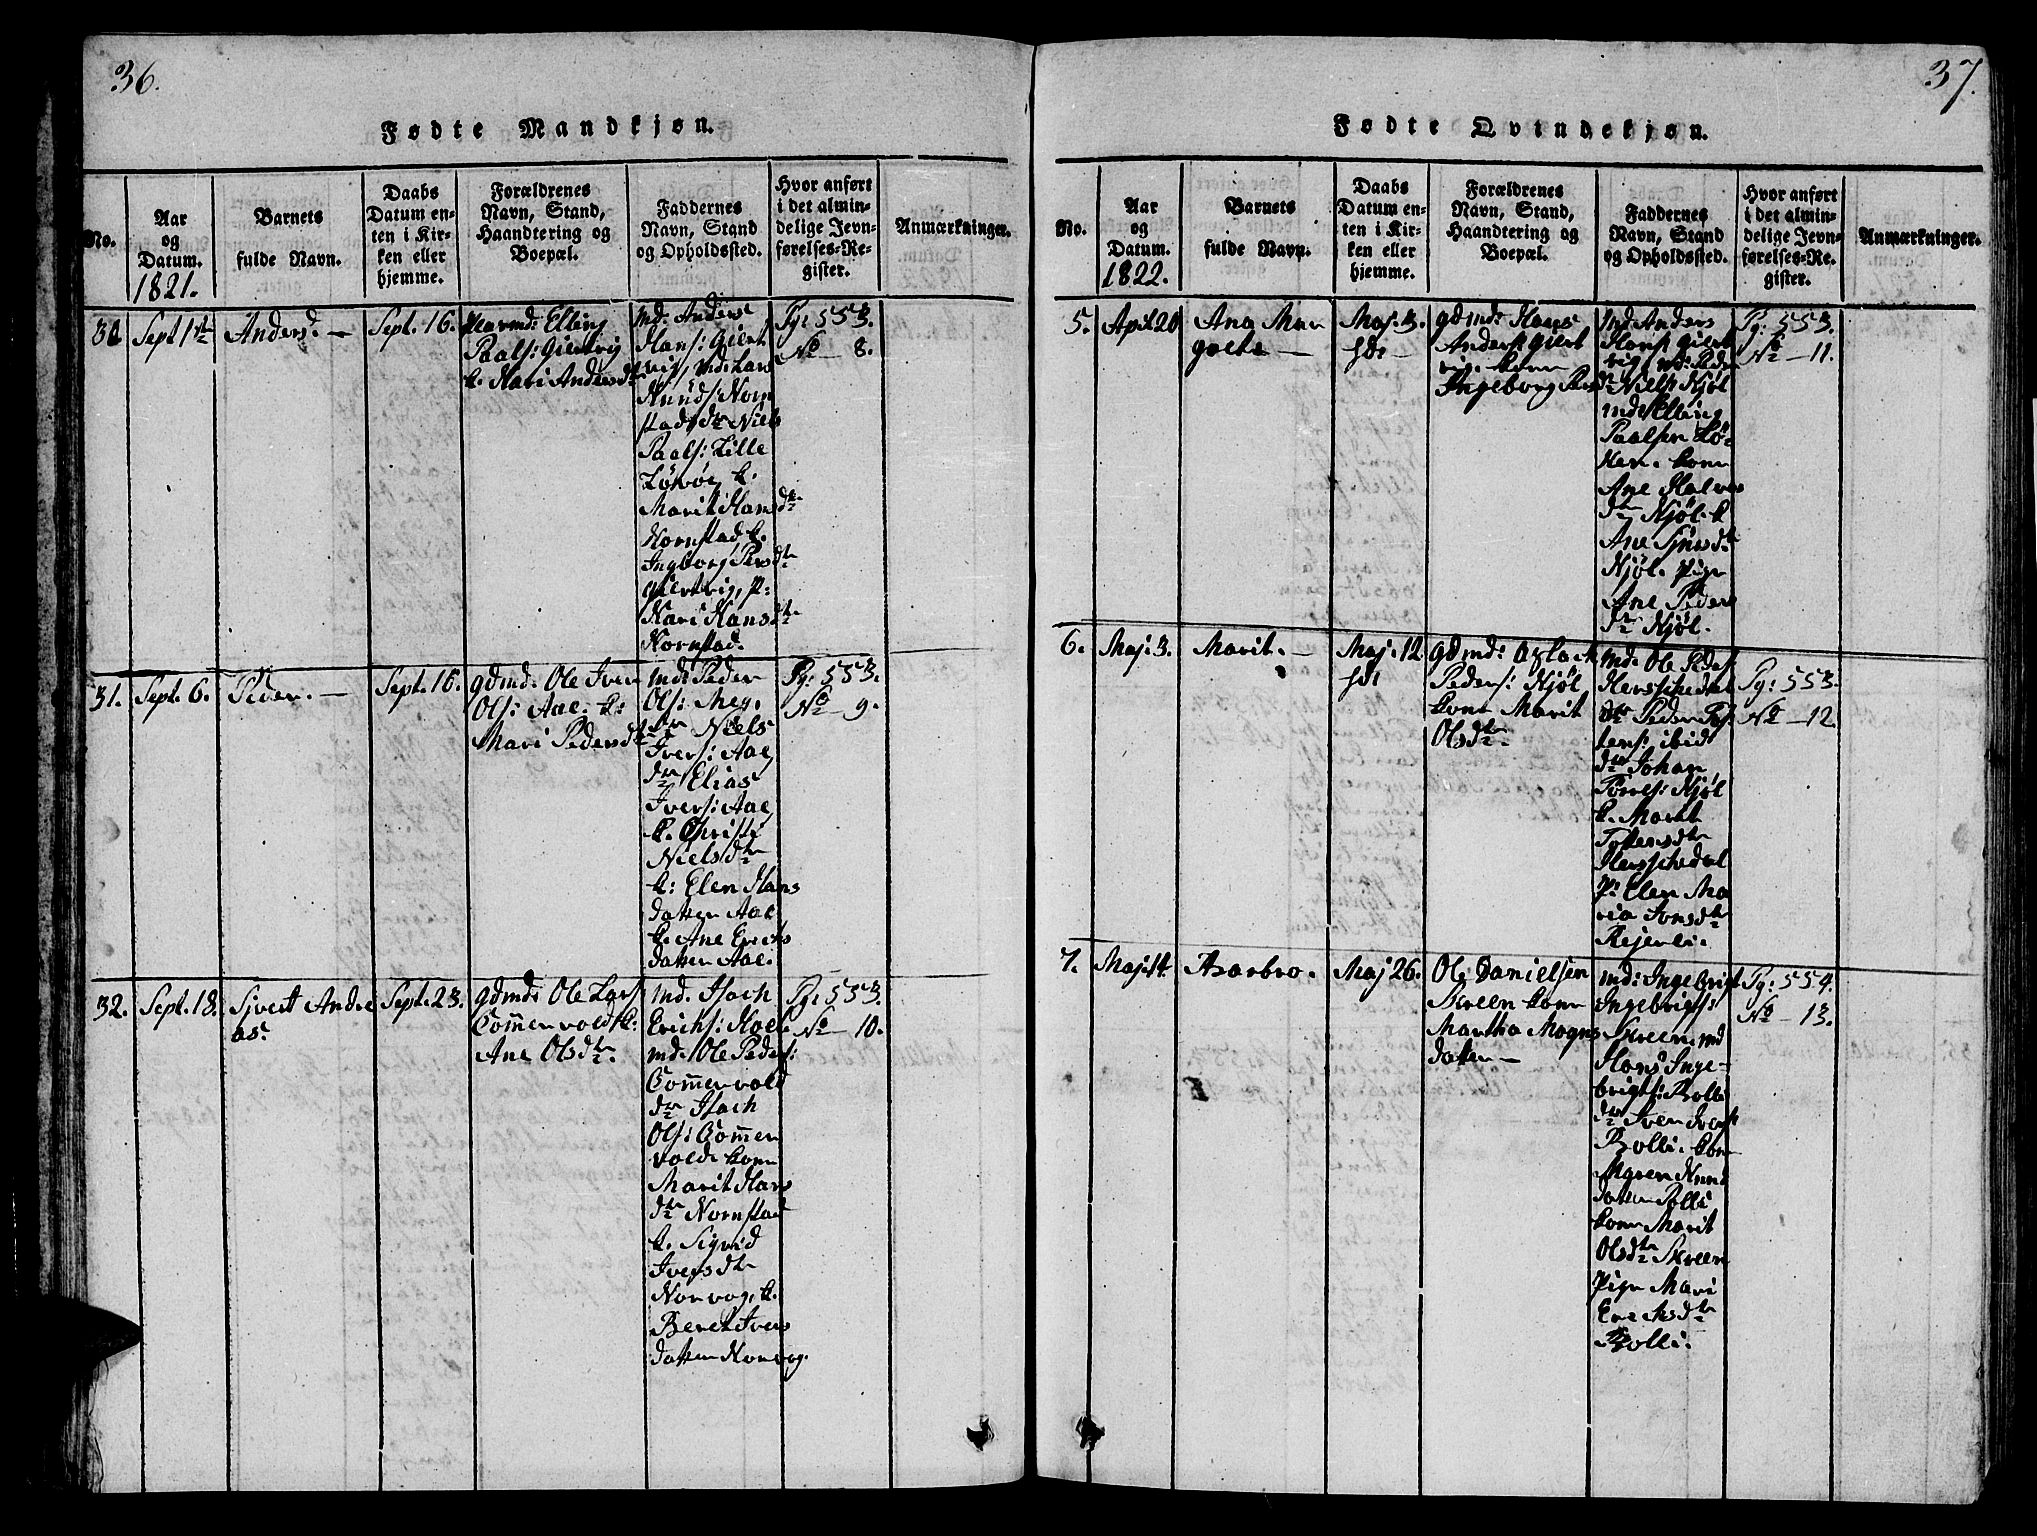 36.
Fødte Mandkjøn.
No.
Aar
og
Datum.
1821.
Barnets
fulde Navn.
Daabs
Datum en-
ten i Kir-
ken eller
hjemme.
Forældrenes
Navn, Stand,
Haandtering og
Boepæl.
Faddernes
Navn, Stand
og Opholdssted.
Hvor anført
i det almin-
delige Jevn-
førelses-Re-
gister.
Anmærkninger.
30
Sept 1ste
Anders. —
Sept. 16.
Elling
Paals: Giertvig
k. Mari Andersdtr
Md. Anders
Hans: Giert
vig, md. Lars
Knuds: Norn
stad, dr Niels
Paals: Lille
k.
Marit Hansdtr
Nornstad k.
Ingborg Persdtr
Giertvig, p:
Kari Hansdtr
Nornstad.
Pg: 553.
No — 8.
31.
Sept. 6.
Peder. —
Sept. 16.
Gdmd: Ole Iver
Ols: Aae. k:
Mari Pedersdtr
Md: Peder
Ols: Meg,
dr Niels
Ivers: Aae,
dr Elias
Ivers: Aae
k. Christi
Nielsdtr
k: Elen Hans
datter Aae
k. Ane Erichs
datter Aae.
Pg: 553.
No — 9.
32.
Sept. 18.
Sjvert Andre
as.
Sept. 23.
Gdmd: Ole Lars
Gom̄envold k:
Ane Olsdtr.
Md. Isach
Erichs: Hoel
md. Ole Peders:
Gom̄envold
dr Isach
Ols: Gom̄en
vold. kone
Marit Hans
dtr Nornstad
k. Sigrid
Iversdtr
Norvog, k.
Beret Ivers
datter Norvog.
Pg: 553.
No — 10.
37.
Fødte Qvindekjøn.
No.
Aar
og
Datum.
1822.
Barnets
fulde Navn.
Daabs
Datum en-
ten i Kir-
ken eller
hjemme.
Forældrenes
Navn, Stand,
Haandtering og
Boepæl.
Faddernes
Navn, Stand
og Opholdssted.
Hvor anført
i det almin-
delige Jevn-
førelses-Re-
gister.
Anmærkninger.
5.
April 20
Ana Mar
grete —
Maj. 3.
Gdmd: Hans
Anders: Giert
vig. kone
Ingeborg Pers
Md: Anders
Hans: Giert
vig, md: Peder
Niels: Kjøl
md: Elling
Paalsen
kone
Ane Halvors
dtr Kjøl. k
Ane Sjursdtr
Kjøl. Pige
Ane Peders
dtr Kjøl.
Pg: 553.
No — 11.
6.
Maj. 3.
Marit. —
Maj. 12
Gdmd: Aslach
Peders: Kjøl
kone Marit
Olsdtr.
Md. Ole Peders:
Hersschedal
dr Peder
tens: ibid
dr Johan
Kjøl
k. Marit
Tostensdtr
Hersschedal
P: Elen Ma
ria Jonsdtr
Pg: 553.
No — 12.
7.
Maj. 14.
Barbro.
Maj 26.
Ole Danielsen
Skreen kone
Martha Mogns
datter —
Md: Ingebrigt
Ingebrigts:
Skreen. md
Hans Inge-
brigts: Bolli
dr Iver Ivers:
Bolli. kone
Maren Knuds
datter Bolli
kone Marit
Olsdtr Skreen
Pige Mari
Erichsdtr
Bolli.
Pg: 554.
No — 13.